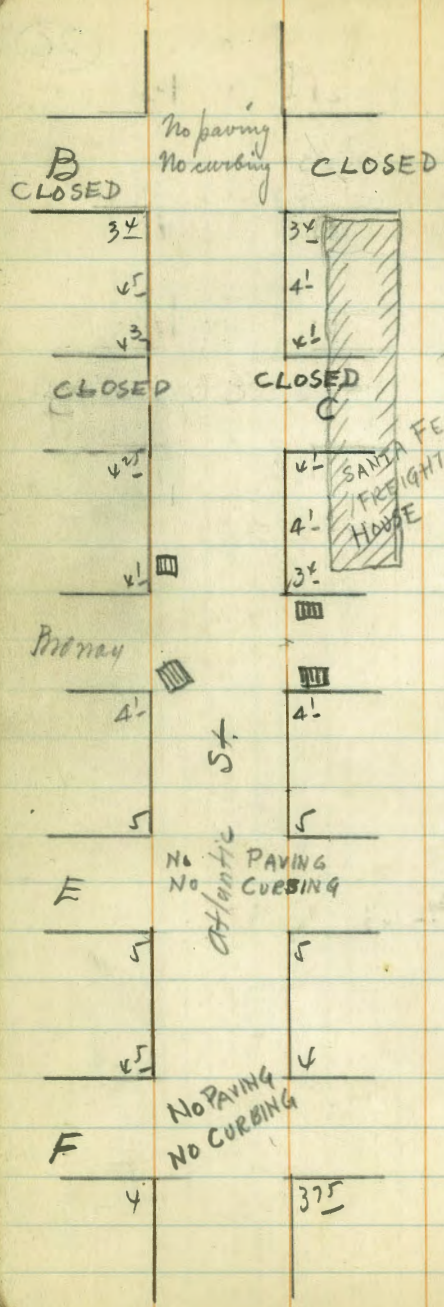 No paving
No curbing
B
CLOSED
CLOSED
3 4
3 4
4 5
4 1
4 3
4 1
CLOSED
CLOSED
C
4 25
4 1
SANTA FE
FREIGHT
HOUSE
4 1
4 1
3 4
4 1
4 1
Atlantic St.
5
5
No PAVING
No CURBING
E
5
5
4 5
4
NO PAVING
NO CURBING
F
4
3 75